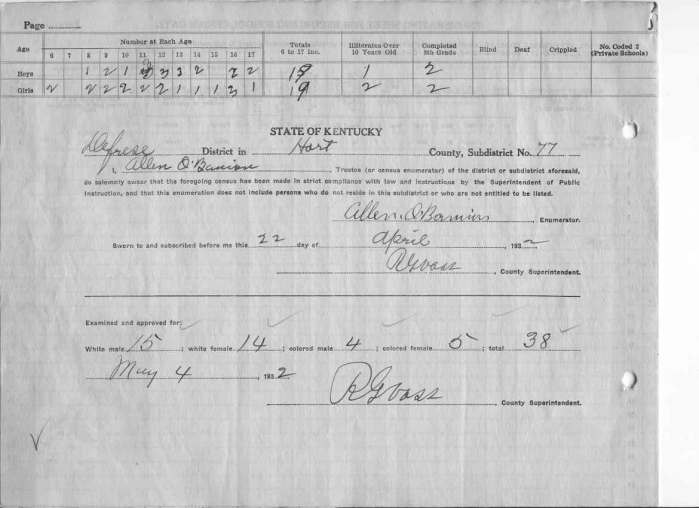 Page
Age Number at Each Age Totals 6 to 17 Inc. Illiterates Over 10 Years Old Completed 8th Grade Blind Deaf Crippled No. Coded 2 (Private Schools)
6 7 8 9 10 11 12 13 14 15 16 17
Boys 1 2 1 3 3 2 2 2 19 1 2
Girls 2 2 2 2 2 2 1 1 1 3 1 19 2 2
STATE OF KENTUCKY
Defrese District in Hart County, Subdistrict No. 77
I, Allen O'Banion, Trustee (or census enumerator) of the district or subdistrict aforesaid,
do solemnly swear that the foregoing census has been made in strict compliance with law and instructions by the Superintendent of Public
Instruction, and that this enumeration does not include persons who do not reside in this subdistrict or who are not entitled to be listed.
Allen O'Banion, Enumerator.
Sworn to and subscribed before me this 22 day of April, 1932
R G Vass, County Superintendent.
Examined and approved for:
White male 15; white female 14; colored male 4; colored female 5; total 38
May 4, 1932
R G Vass, County Superintendent.